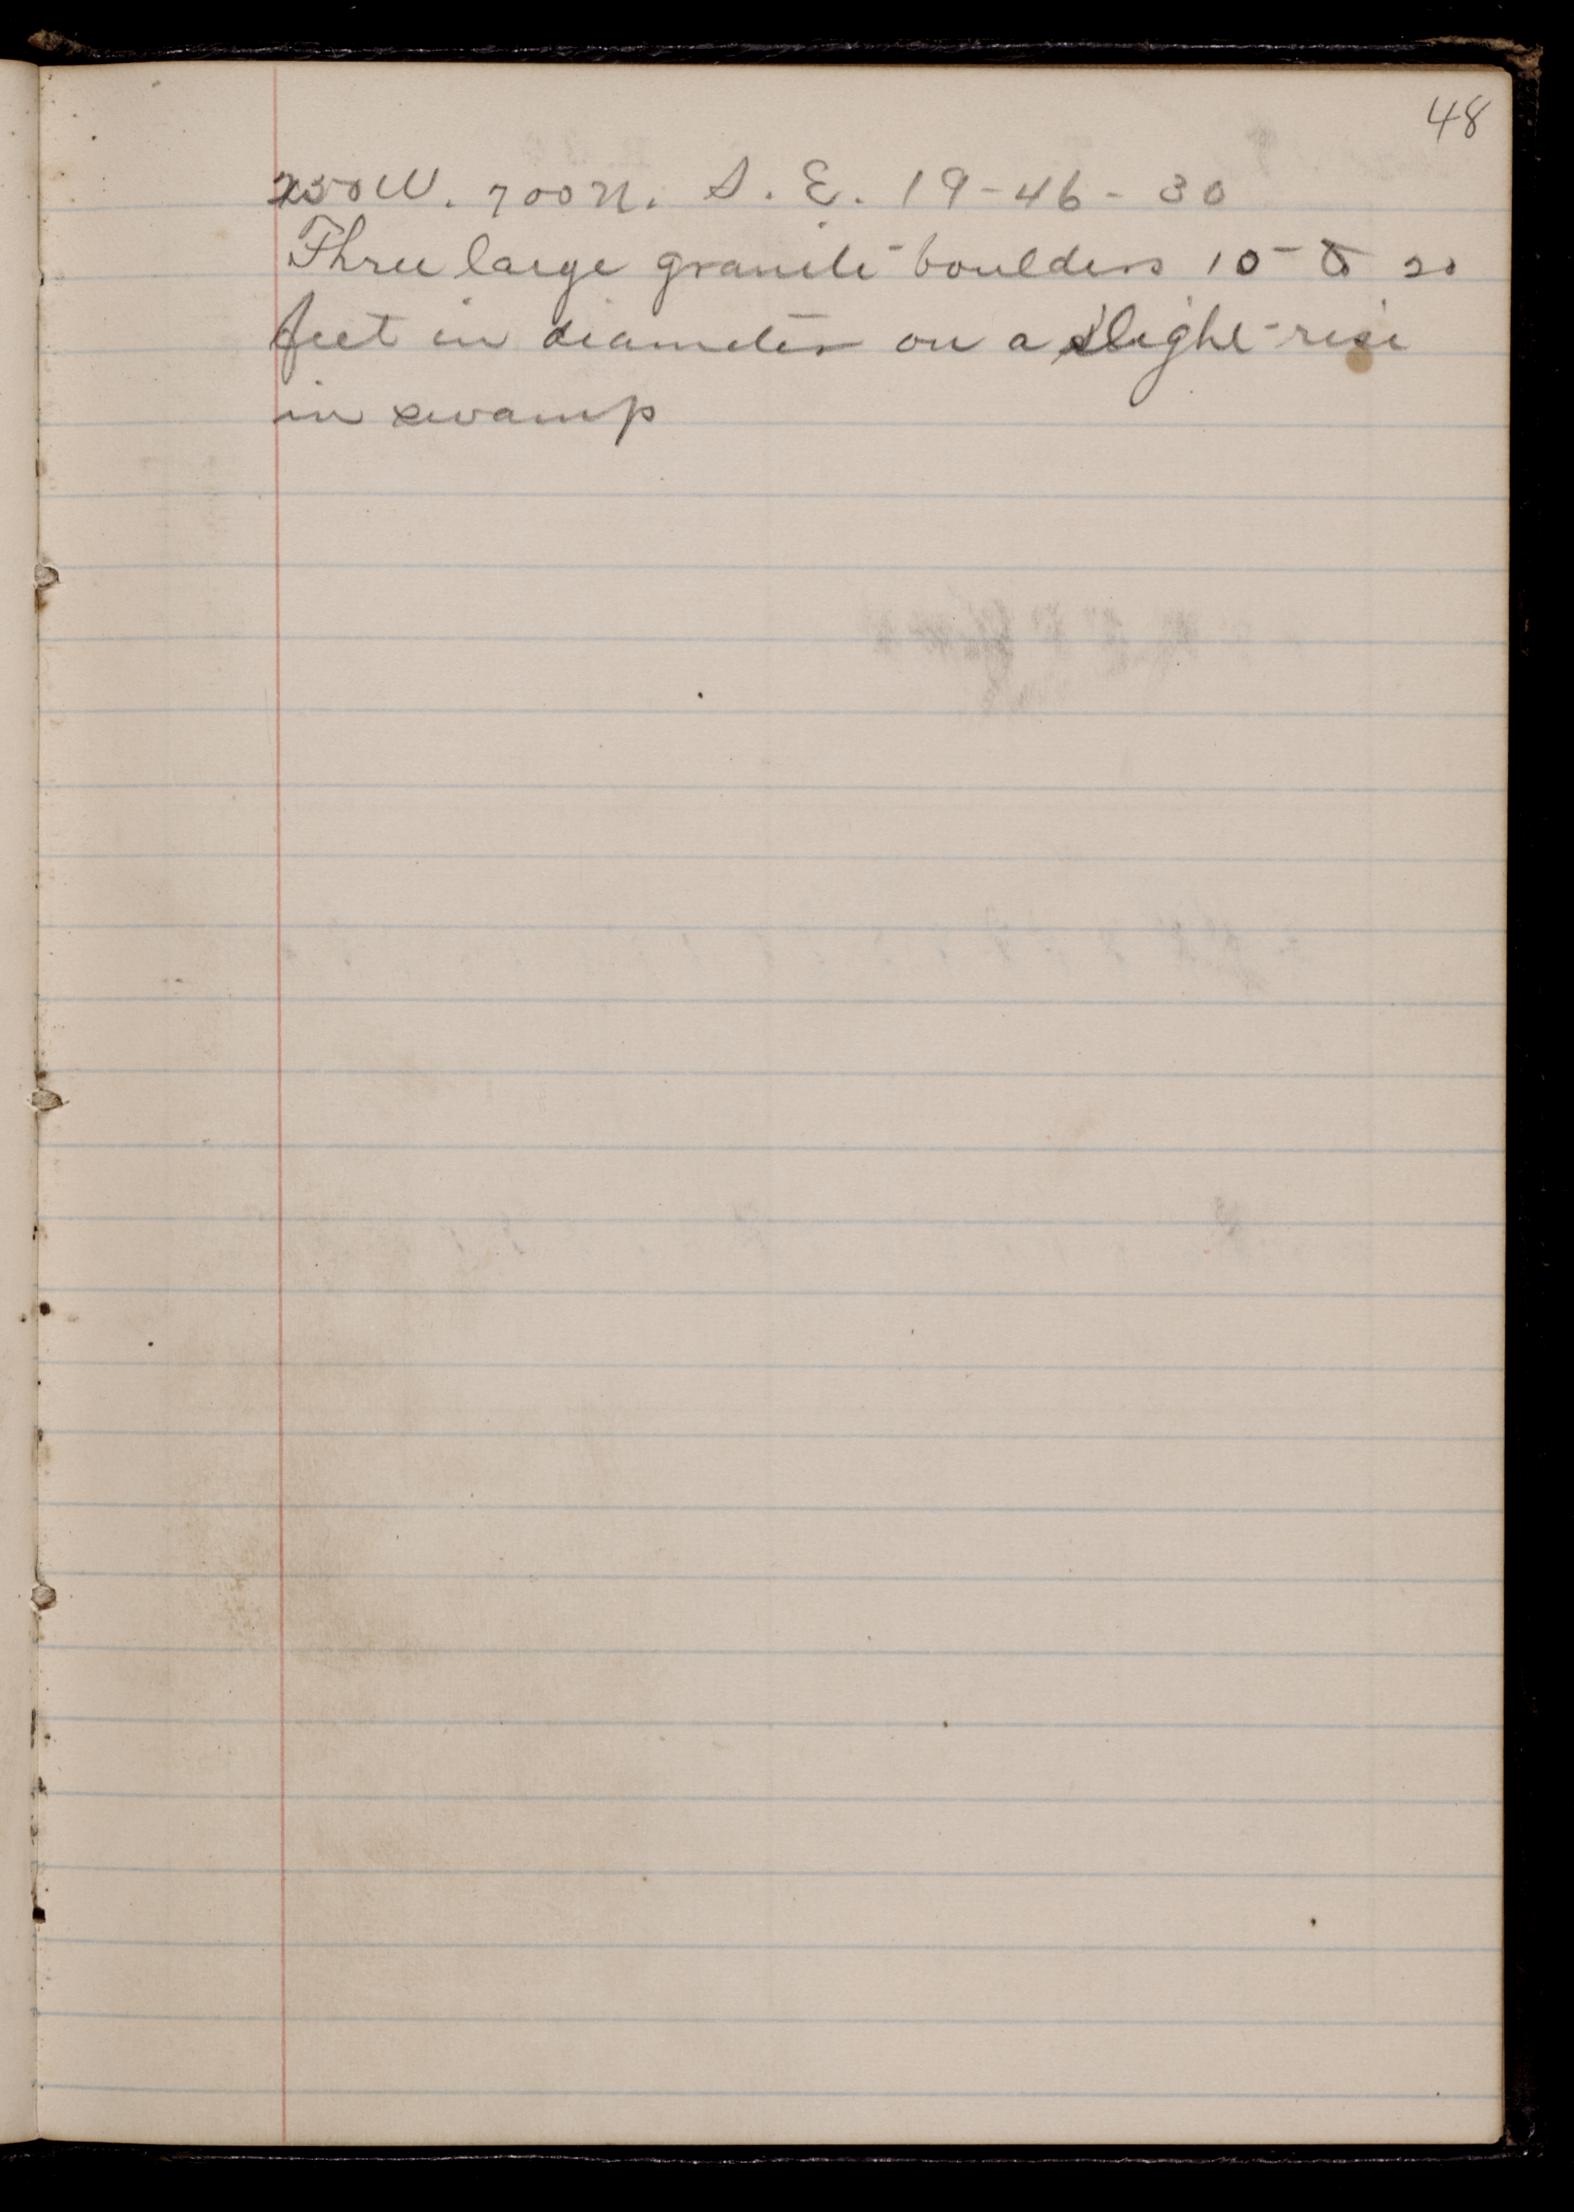 48
250 W. 700 N. S. E. 19-46-30
Three large granite boulders 10 to 20
feet in diameter on a slight rise
in swamp